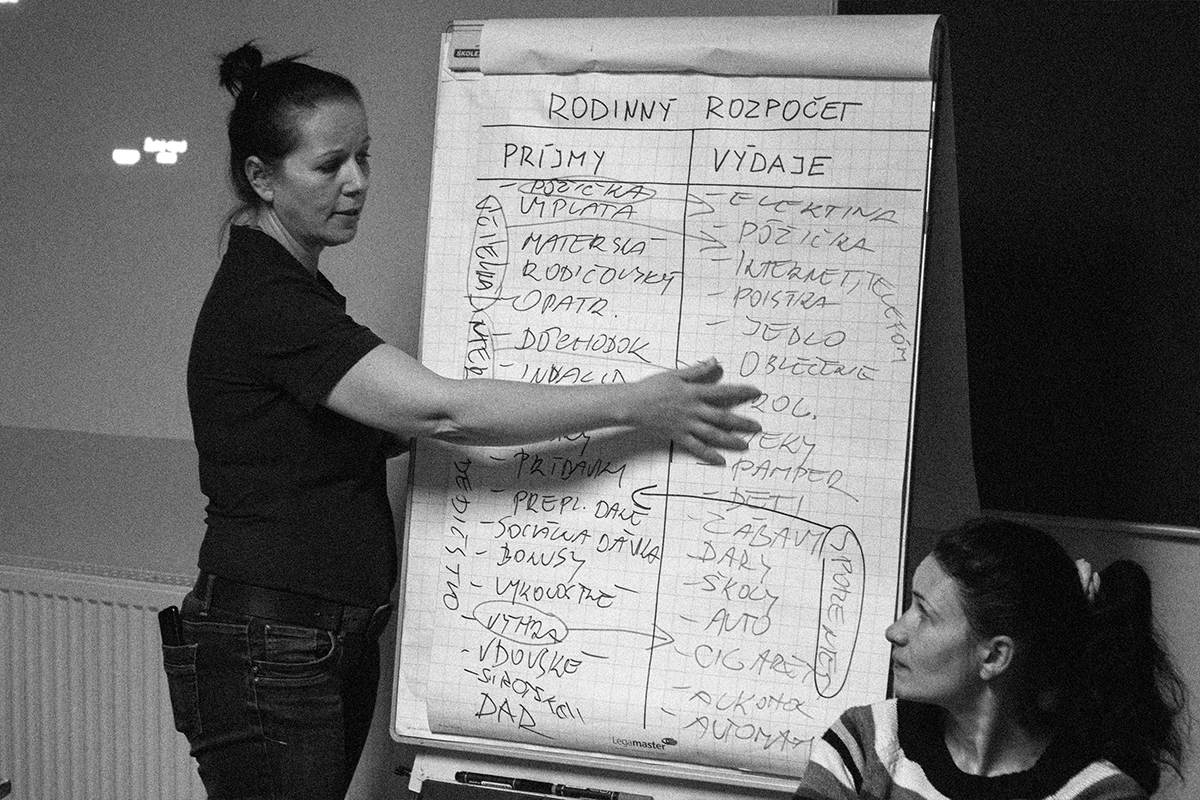 RODINNÝ ROZPOČET
PRÍJMY
- PÔŽIČKA
VÝPLATA
MATERSKÁ
RODIČOVSKÝ
- OPATR.
- DÔCHODOK
- INVALID
- PRÍDAVKY
- PREPL. DANE
- SOCIÁLNA DÁVKA
- BONUSY
- VÝHRA
- VDOVSKÉ
DAR
DEDICSTVO
VÝDAJE
- ELEKTINA
- PÔŽIČKA
- INTERNET, TELEFÓM
- POISTKA
- JEDLO
- OBLEČENIE
- PAMPER
- DETI
- ZÁBAVY
- DARY
- ŠKOLY
- AUTO
- CIGARETY
- ALKOHOL
- AUTOMATY
Legamaster